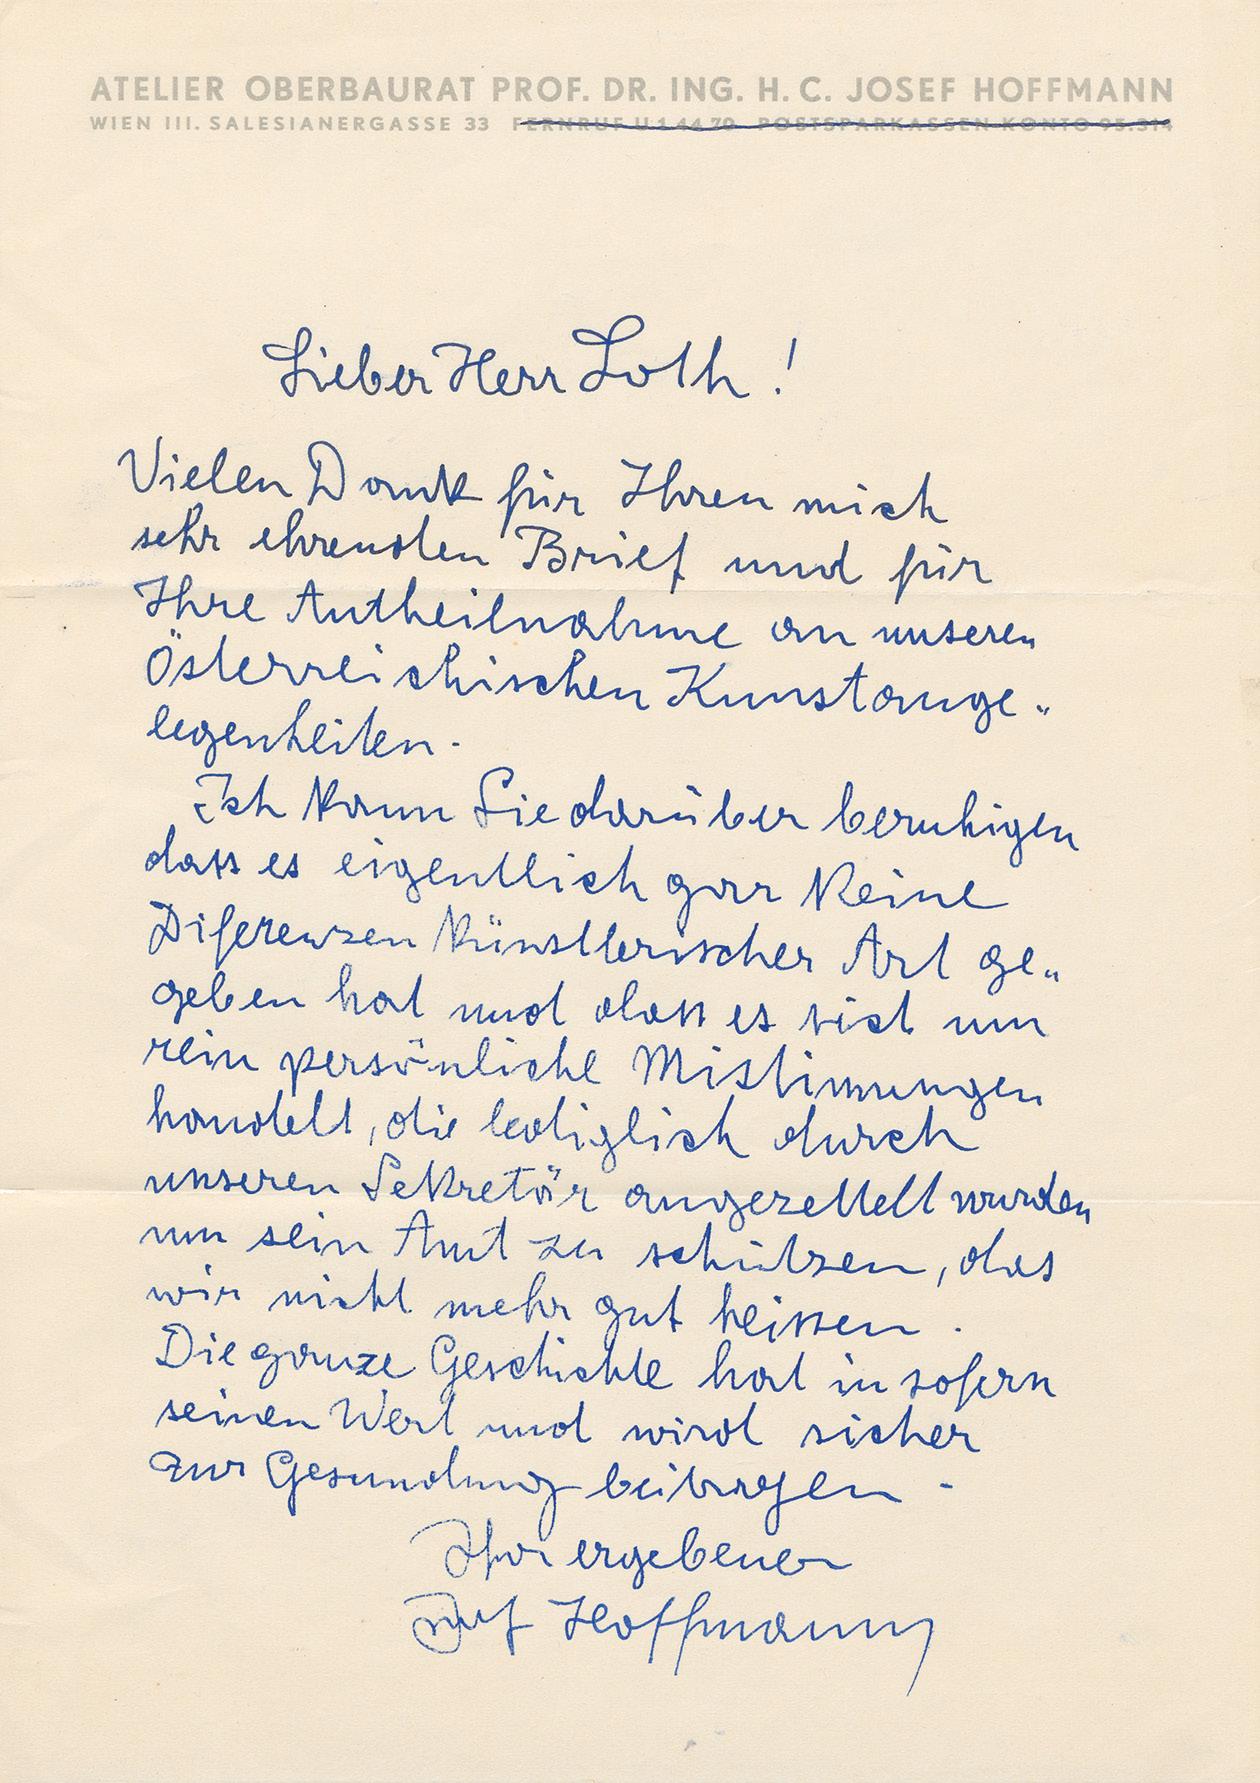 ATELIER OBERBAURAT PROF. DR. ING. H. C. JOSEF HOFFMANN
WIEN III. SALESIANERGASSE 33 FERNRUF U 1 44 70 POSTSPARKASSEN-KONTO 95.314
Lieber Herr Loth!
Vielen Dank für Ihren mich
sehr ehrenden Brief und für
Ihre Antheilnahme an unseren
Österreichischen Kunstange„
legenheiten.
Ich kann Sie darüber beruhigen
dass es eigentlich gar keine
Diferenzen künstlerischer Art ge„
geben hat und dass es sich um
rein persönliche Mistimmungen
handelt, die lediglich durch
unseren Sekretär angezettelt wurden
um sein Amt zu schützen, das
wir nicht mehr gut heissen.
Die ganze Geschichte hat in sofern
seinen Wert und wird sicher
zur Gesundung beitragen.
Ihr ergebener
Josef Hoffmann